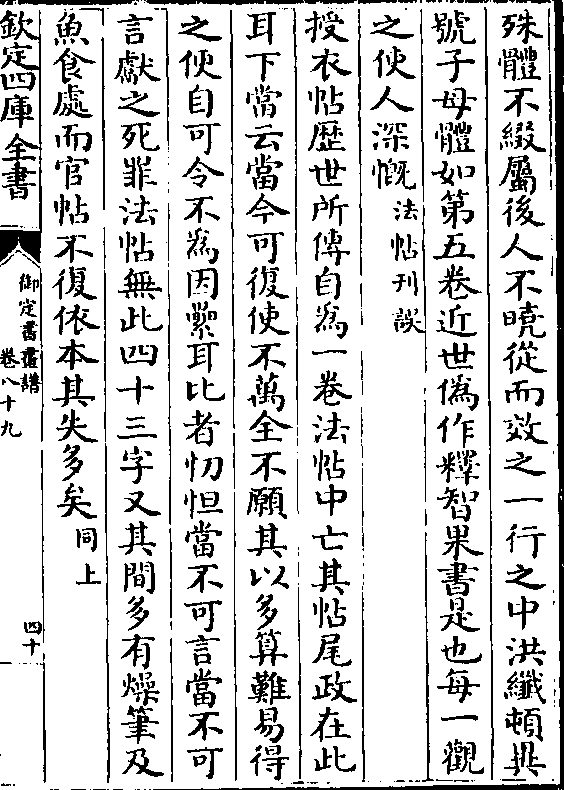 殊體不綴屬後人不曉從而效之一行之中洪纎頓異
號子母體如第五卷近世偽作釋智果書是也每一觀
之使人深慨法帖刋誤
授衣帖歴世所傳自為一卷法帖中亡其帖尾政在此
耳下當云當今可復使不萬全不願其以多算難易得
之使自可令不為因縈耳比者忉怛當不可言當不可
言獻之死罪法帖無此四十三字又其間多有燥筆及
魚食處而官帖不復依本其失多矣同上
欽定四庫全書
御定書畫譜
卷八十九
四十